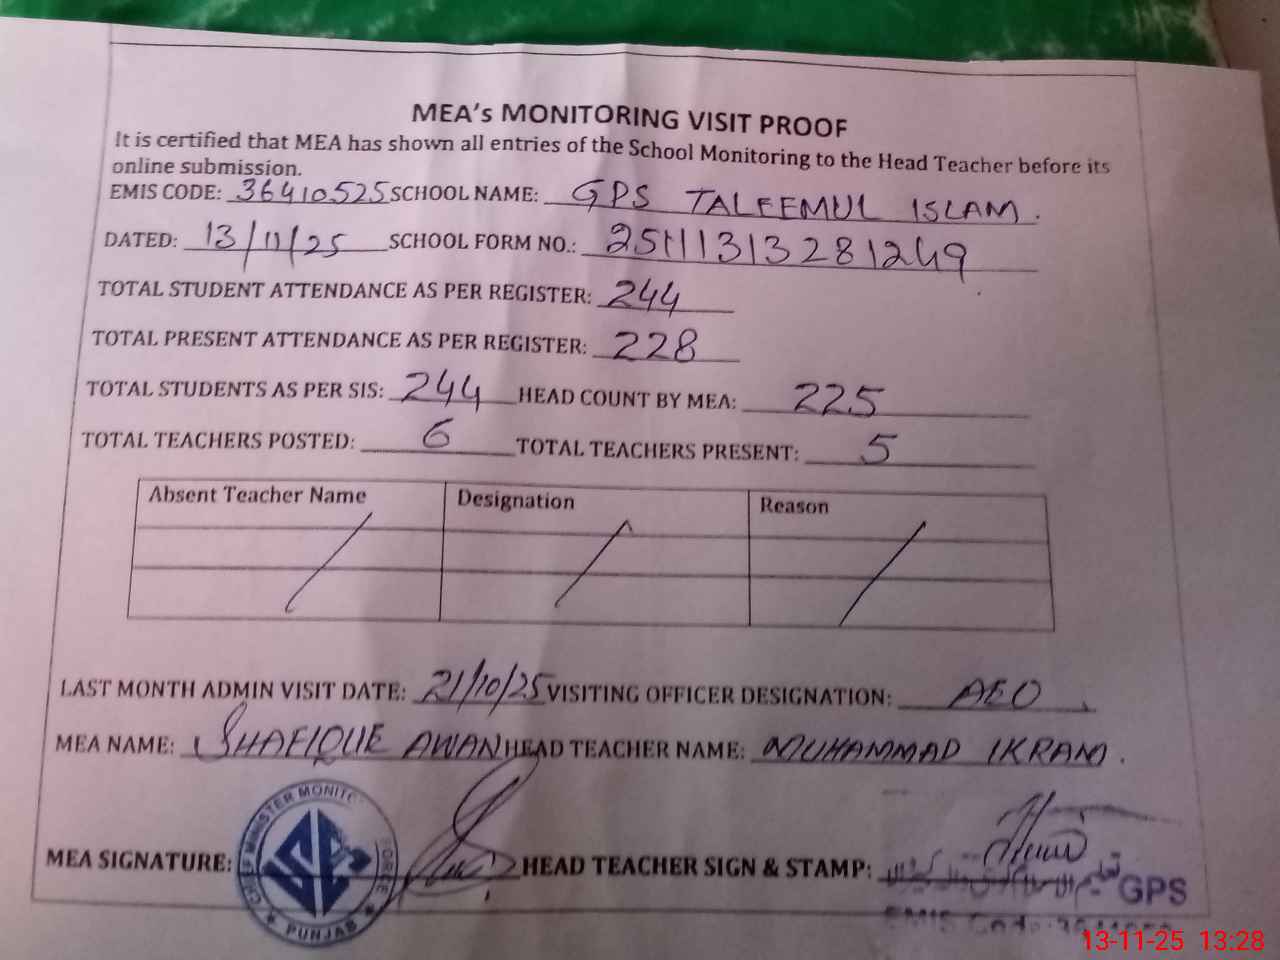 MEA's MONITORING VISIT PROOF
It is certified that MEA has shown all entries of the School Monitoring to the Head Teacher before its
online submission.
EMIS CODE: 36410525 SCHOOL NAME: GPS TALEEMUL ISLAM.
DATED: 13/11/25 SCHOOL FORM NO.: 25111313281249
TOTAL STUDENT ATTENDANCE AS PER REGISTER: 244
TOTAL PRESENT ATTENDANCE AS PER REGISTER: 228
TOTAL STUDENTS AS PER SIS: 244 HEAD COUNT BY MEA: 225
TOTAL TEACHERS POSTED: 6 TOTAL TEACHERS PRESENT: 5
Absent Teacher Name Designation Reason
LAST MONTH ADMIN VISIT DATE: 21/10/25 VISITING OFFICER DESIGNATION: AEO
MEA NAME: SHAFIQUE AWAN HEAD TEACHER NAME: MUHAMMAD IKRAM.
MEA SIGNATURE: HEAD TEACHER SIGN & STAMP:
CHIEF MINISTER MONITO FORCE PUNJAB
GPS
EMIS Code:
13-11-25 13:28